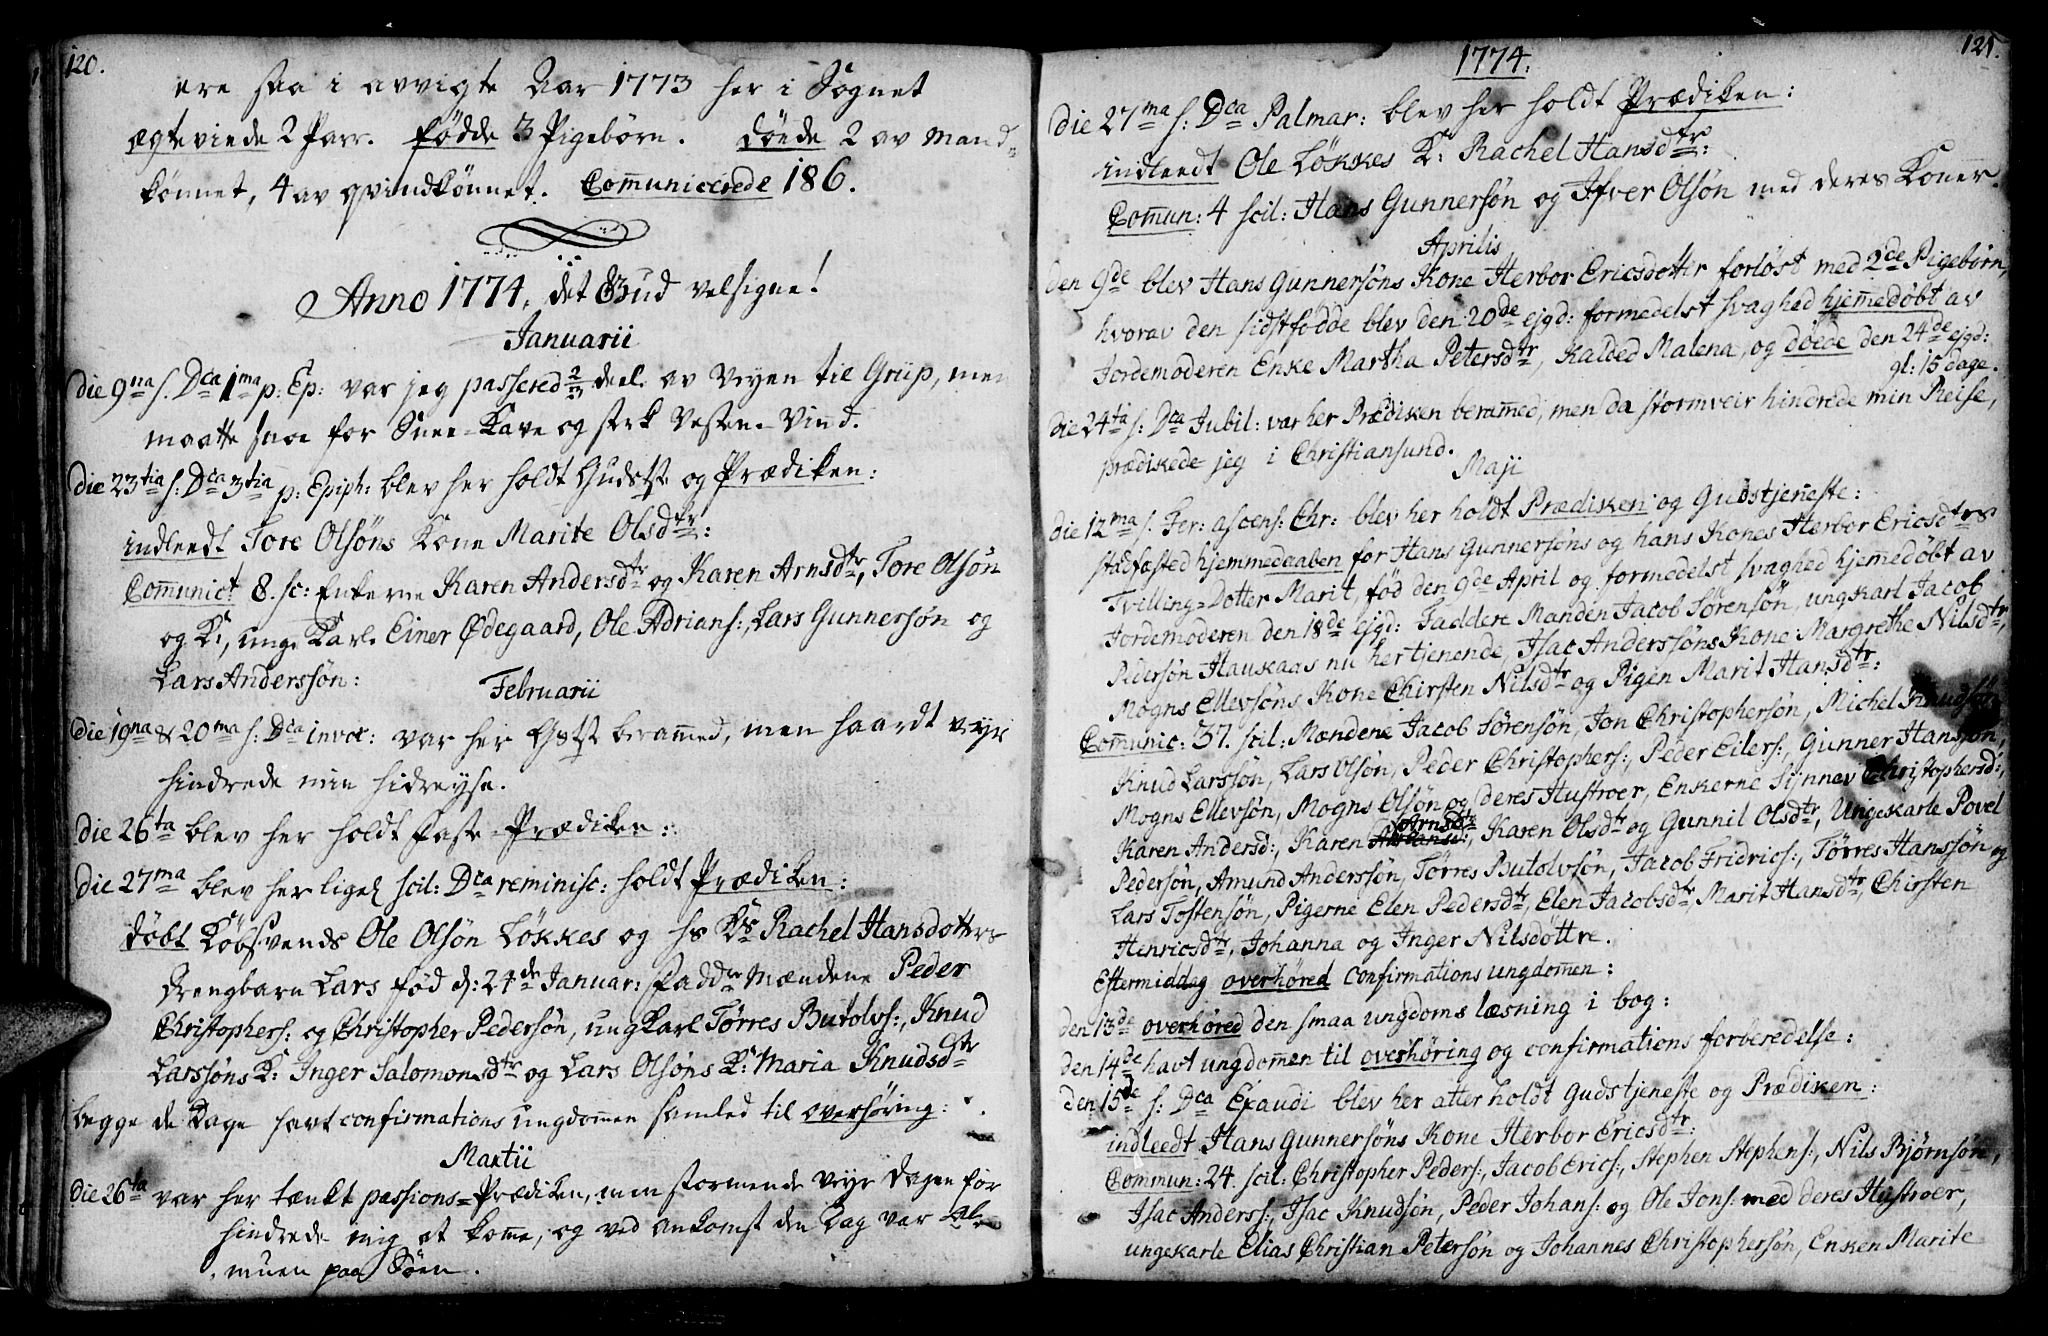 120.
ere saa i avvigte Aar 1773 her i Sognet
ægteviede 2 Parr. fødde 3 Pigebørn. döede 2 av Mand-
könnet, 4 av qvindkönnet. Com̅unicerede 186.
Anno 1774, det Gud velsigne!
Januarii
die 9na s: Dca 1ma p: Ep: var jeg passered 2/3 deel av Veyen til Griip, men
maatte snoe for Snee-Kave og sterk Vesten-Vind.
die 23tia s: Dca 3tia p: Epiph: blev her holdt Gudstst og Prædiken:
indleedt Tore Olsöns Kone Marite Olsdtr:
Com̅unict 8. sc: Enkerne Karen Andersdtr og Karen Arnsdtr, Tore Olsön
og K:, unge Karle Einer Ødegaard, Ole Adrians:, Lars Gunnersön og
Lars Anderssön:
Februarii
die 19na & 20ma s: Dca invoc: var her Gstst beram̅ed, men haardt veyr
hindrede min hidreyse.
die 26ta blev her holdt faste-Prædiken:
die 27ma blev her ligel scil: Dca reminisc: holdt Prædiken:
döbt Köbsvends Ole Olsön Lökkes og hs Ks Rachel Hansdotters
Drengbarn Lars föd d: 24de Januar: Faddre Mændene Peder
Christophers: og Christopher Pedersön, ungkarl Törres Butolvs:, Knud
Larssöns K: Inger Salomonsdtr og Lars Olsöns K: Maria Knudsdtr
begge de Dage havt confirmations ungdom̅en samled til overhöring:
Martii
die 26ta var her tænkt passions-Prædiken, men stormende veyr dagen för
hindrede mig at kom̅e, og ved ankomst den Dag var Al-
muen paa Söen.
1774.
121.
die 27ma s: Dca Palmar: blev her holdt Prædiken:
indleedt Ole Lökkes K: Rachel Hansdtr:
Com̅un: 4 scil: Hans Gunnersön og Ifver Olsön med deres Koner.
Aprilis
den 9de blev Hans Gunnersöns Kone Herbor Ericsdotter forløst med 2de Pigebørn,
hvorav den sidstfödde blev den 20de ejgd: formedelst svaghed hjem̅edøbt av
Jordemoderen Enke Martha Petersdtr, kalded Malena, og döede den 24de ejgd:
gl: 15 dage.
die 24ta s: Dca Jubil: var her Prædiken beram̅ed, men da stormveir hindrede min Reise,
prædikede jeg i Christiansund.
Maji
die 12ma s: Fer: ascens: Chr: blev her holdt Prædiken og Gudstjeneste:
stadfæsted hjemmedaaben for Hans Gunnersöns og hans Kones Herbor Ericsdtrs
Tvilling-Dotter Marit, fød den 9de April og formedelst svaghed hjem̅edøbt av
Jordemoderen den 18de ejgd: Faddere Manden Jacob Sörensön, ungkarl Jacob
Pedersön Hauskaas nu her tjenende, Isac Anderssöns Kone Margrethe Nilsdtr,
Mogns Ellevsöns Kone Chirsten Nilsdtr og Pigen Marit Hansdtr:
Com̅unic: 37. scil: Mændene Jacob Sörensön, Jon Christophersön, Michel Knudsön,
Knud Larssön, Lars Olsön, Peder Christophers:, Peder Eilers:, Gunner Hanssön,
Mogns Ellevsön, Mogns Olsön og deres Hustroer, Enkerne Synnev Christophersd:,
Karen Andersd:, Karen Arnsdtr, Karen Olsdtr og Gunnil Olsdtr, Ungekarle Povel
Pedersön, Amund Anderssön, Törres Butolvsön, Jacob Fridrics:, Törres Hanssön og
Lars Tostensön, Pigerne Elen Pedersdtr, Elen Jacobsdtr, Marit Hansdtr, Chirsten
Henricsdtr, Johanna og Inger Nilsdöttre.
Eftermiddag overhöred confirmations ungdom̅en:
den 13de overhöred den smaa ungdoms læsning i bog:
den 14de havt ungdom̅en til overhöring og confirmations forberedelse:
den 15de s: Dca Exaudi blev her atter holdt Gudstjeneste og Prædiken:
indleedt Hans Gunnersöns Kone Herbor Ericsdtr:
Commun: 24. scil: Christopher Peders:, Jacob Erics:, Stephen Stephens:, Nils Bjørnsön,
Isac Anders:, Isac Knudsön, Peder Johans: og Ole Jons: med deres Hustroer,
ungekarle Elias Christian Petersön og Johannes Christophersön, Enken Marite